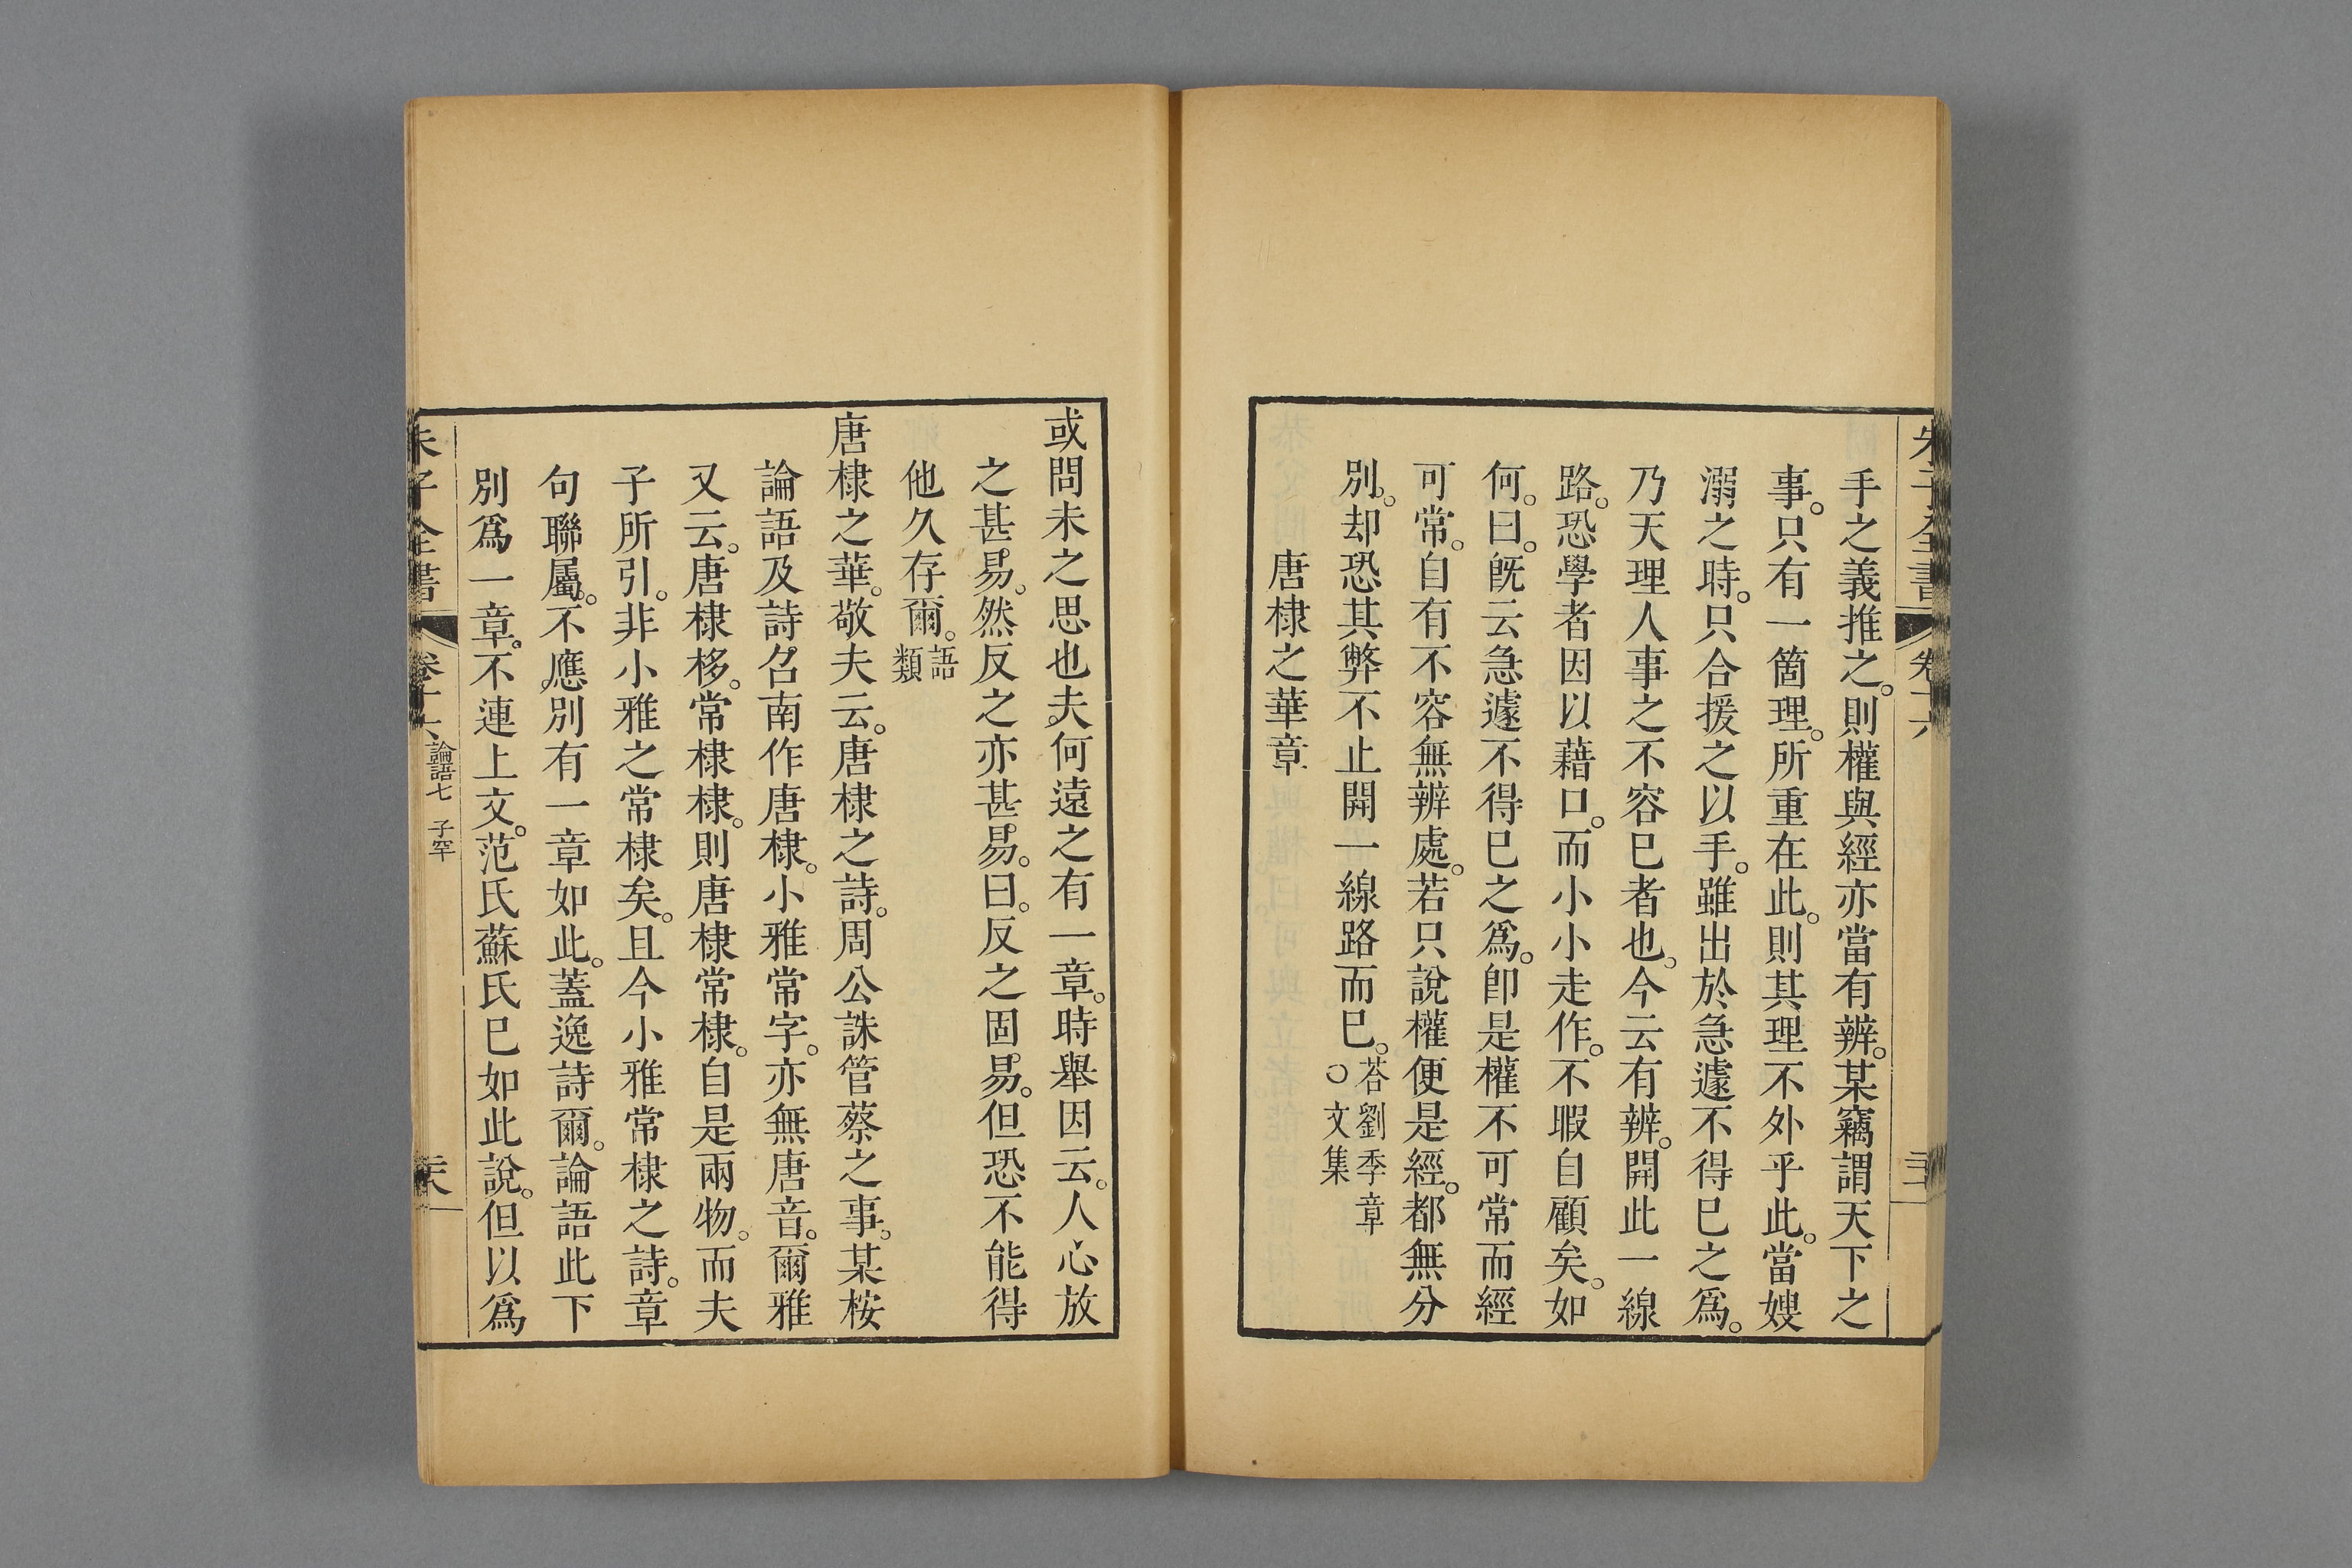 朱子全書 卷十六
手之義推之。則權與經亦當有辨。某竊謂天下之
事。只有一箇理。所重在此。則其理不外乎此。當嫂
溺之時。只合援之以手。雖出於急遽不得已之爲。
乃天理人事之不容已者也。今云有辨。開此一線
路。恐學者因以藉口。而小小走作。不暇自顧矣。如
何。曰。旣云急遽不得已之爲。卽是權不可常而經
可常。自有不容無辨處。若只說權便是經。都無分
別。却恐其弊不止開一線路而已。荅劉季章○文集
唐棣之華章
或問未之思也夫何遠之有一章。時舉因云。人心放
之甚易。然反之亦甚易。曰。反之固易。但恐不能得
他久存爾。語類
唐棣之華。敬夫云。唐棣之詩。周公誅管蔡之事。某桉
論語及詩召南作唐棣。小雅常字。亦無唐音。爾雅
又云。唐棣栘。常棣棣。則唐棣常棣。自是兩物。而夫
子所引。非小雅之常棣矣。且今小雅常棣之詩。章
句聯屬。不應別有一章如此。蓋逸詩爾。論語此下
別爲一章。不連上文。范氏蘇氏已如此說。但以爲
朱子全書 卷十六 論語七 子罕